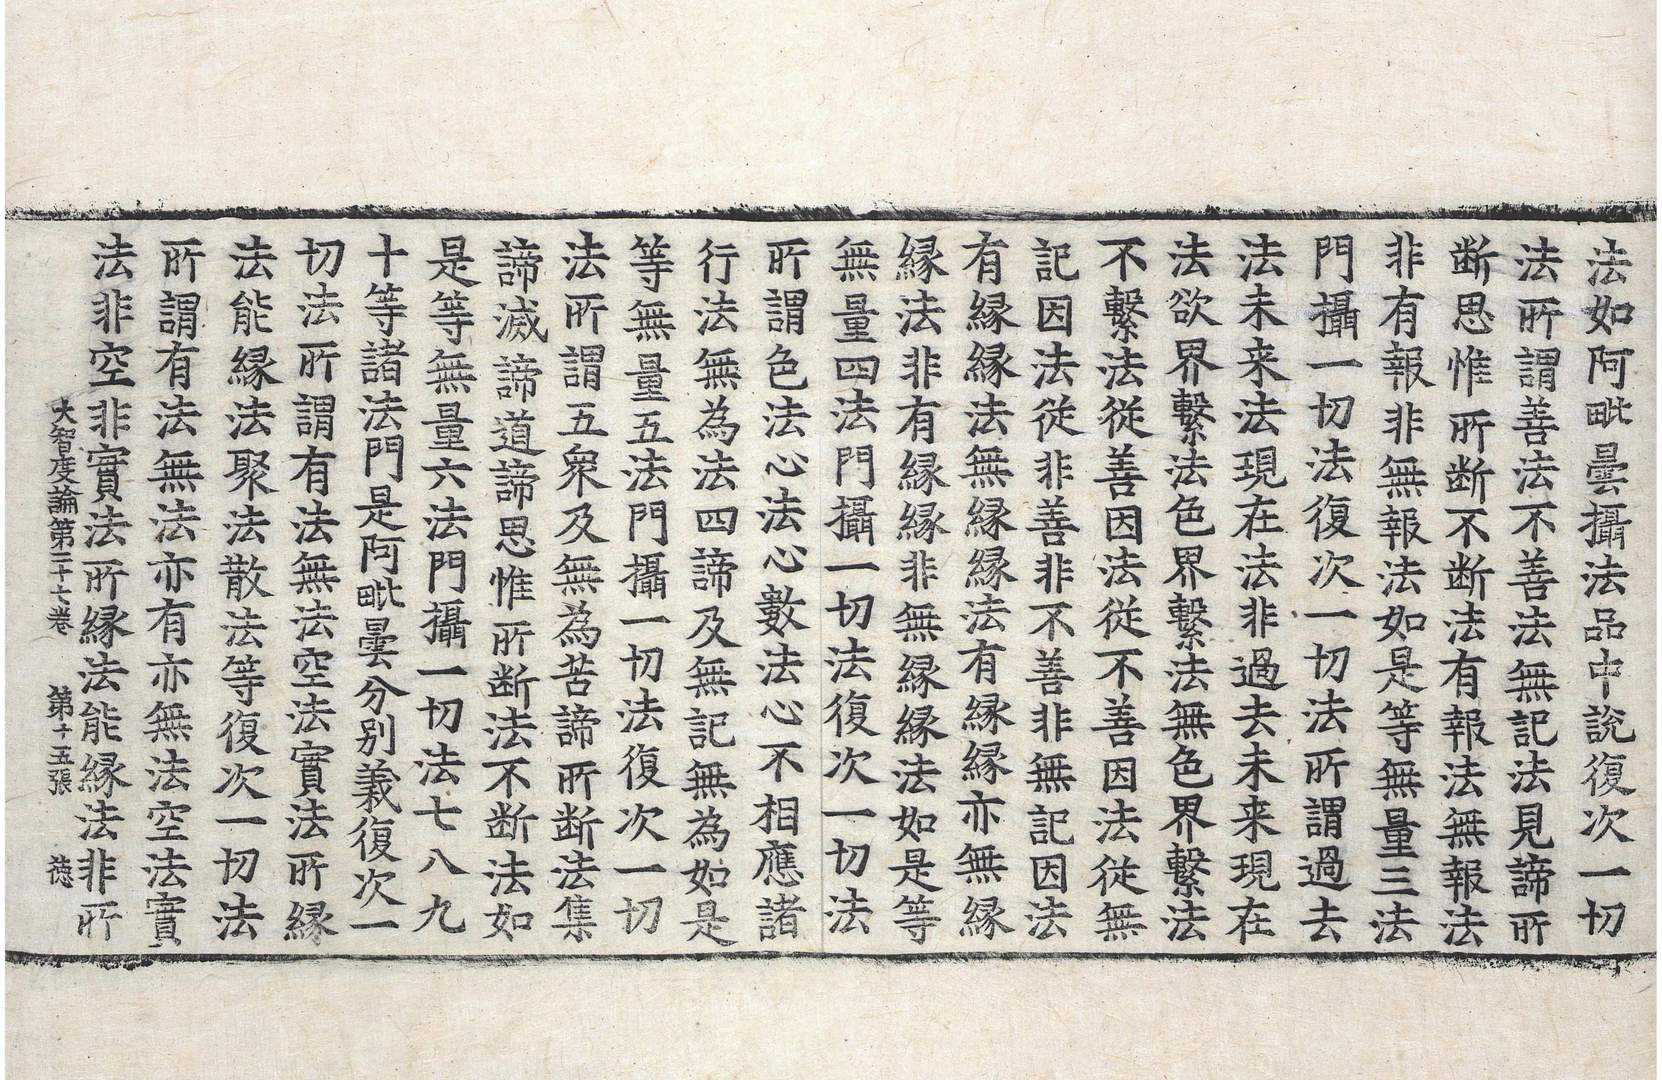 法如阿毗曇攝法品中說復次一切
法所謂善法不善法無記法見諦所
断思惟所断不断法有報法無報法
非有報非無報法如是等無量三法
門攝一切法復次一切法所謂過去
法未来法現在法非過去未来現在
法欲界繫法色界繫法無色界繫法
不繫法從善因法從不善因法從無
記因法從非善非不善非無記因法
有緣緣法無緣緣法有緣緣亦無緣
緣法非有緣緣非無緣緣法如是等
無量四法門攝一切法復次一切法
所謂色法心法心數法心不相應諸
行法無為法四諦及無記無為如是
等無量五法門攝一切法復次一切
法所謂五衆及無為苦諦所断法集
諦滅諦道諦思惟所断法不断法如
是等無量六法門攝一切法七八九
十等諸法門是阿毗曇分別義復次一
切法所謂有法無法空法實法所緣
法能緣法聚法散法等復次一切法
所謂有法無法亦有亦無法空法實
法非空非實法所緣法能緣法非所
大智度論第三十七卷 第十五張 德